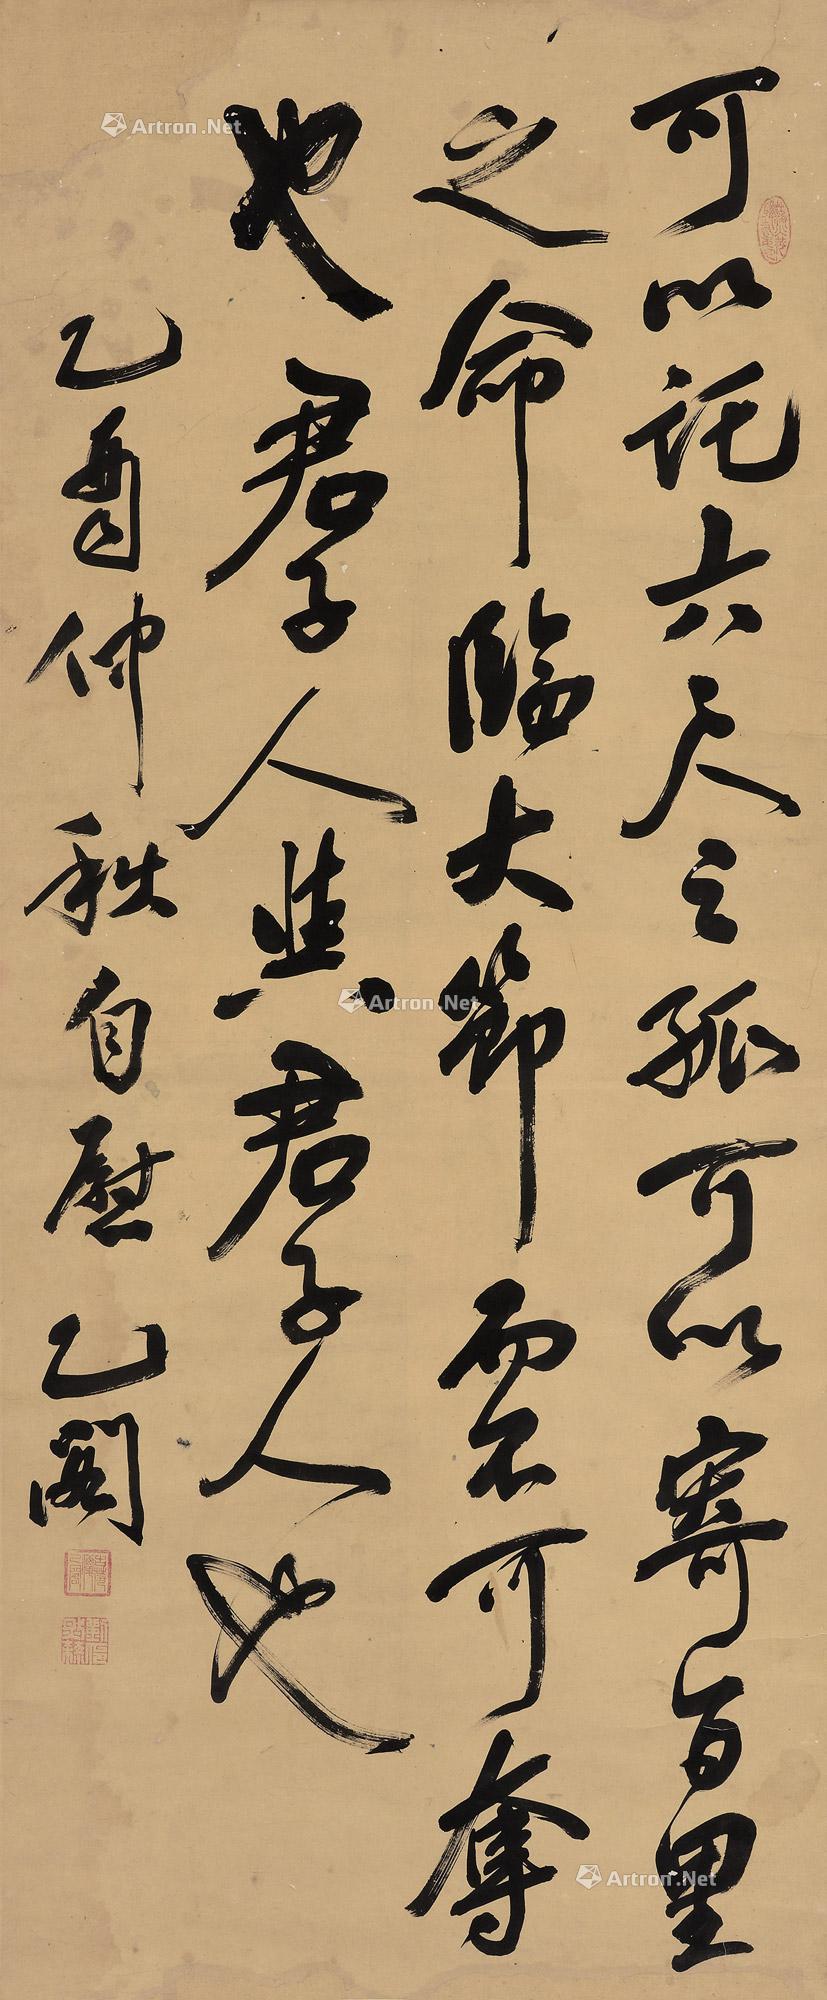 可以託六尺之孤可以寄百里
之命臨大節而不可奪
也君子人與君子人也
乙酉仲秋自慰乙閣
Artron.Net
Artron.Net
Artron.Net